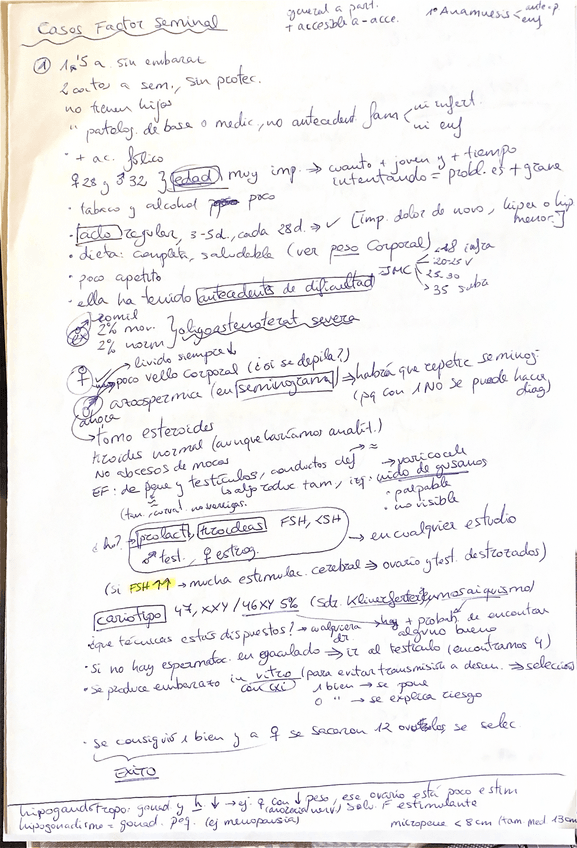 Casos Factor Seminal
general a part.
+ accesible a - acce.
1º Anamnesis < antec. p.
enf
① 1,5 a. sin embarazar
2 coitos a sem., sin protec.
no tienen hijos
" patolog. de base o medic., no antecedent. fam < ni infert.
ni enf
· + ac. fólico
♀ 28 y ♂ 32 } edad muy imp. → cuanto + joven y + tiempo
intentando = probl. es + grave
· tabaco y alcohol poco
· ciclo regular, 3-5 d., cada 28 d. → ✓ [imp. dolor de novo, hiper o hip
menor.]
· dieta: completa, saludable (ver peso corporal)
IMC
<18 infra
20-25 ✓
25-30
35 suba
· poco apetito
· ella ha tenido antecedentes de dificultad
♂ ex
20 mil
2% mov.
2% norm } oligoastenoterat severa
♀ → libido siempre ↓
→ poco vello corporal (¿o si se depila?)
♂ ahora azoospermia (en seminograma) → habría que repetir seminog.
(pq con 1 NO se puede hacer
diag)
→ tomó esteroides
tiroides normal (aunque haríamos analít.)
No abscesos de mocos
EF: de pene y testículos, conductos def → varicocele
algo reduc tam, izq. nido de gusanos
· palpable
· no visible
¿h? → prolact, tiroideas FSH, LSH
♂ test., ♀ estróg. → en cualquier estudio
(Si FSH ↑↑ → mucha estimulac. cerebral → ovario y test. destrozados)
cariotipo 47, XXY / 46XY 5% (Sdr. Klinefelter, mosaiquismo)
¿que técnicas estáis dispuestos? → walquiera → + probab. de encontrar
alguno bueno
· Si no hay espermatoz. en eyaculado → ir al testículo (encontramos 4)
· se produce embarazo in vitro (para evitar transmisión a descen. → selección)
con ICSI
1 bien → se pone
0 " → se explica riesgo
· se consiguió 1 bien y a ♀ se sacaron 12 se selec
EXITO
hipogonadotropo: gonad y h. ↓ → ej. ♀ con ↓ peso, ese ovario está poco estim
(anorexia nerv) Solu. F estimulante
hipogonadismo = gonad. peq. (ej menopausia)
micropene < 8 cm (tam med 13 cm